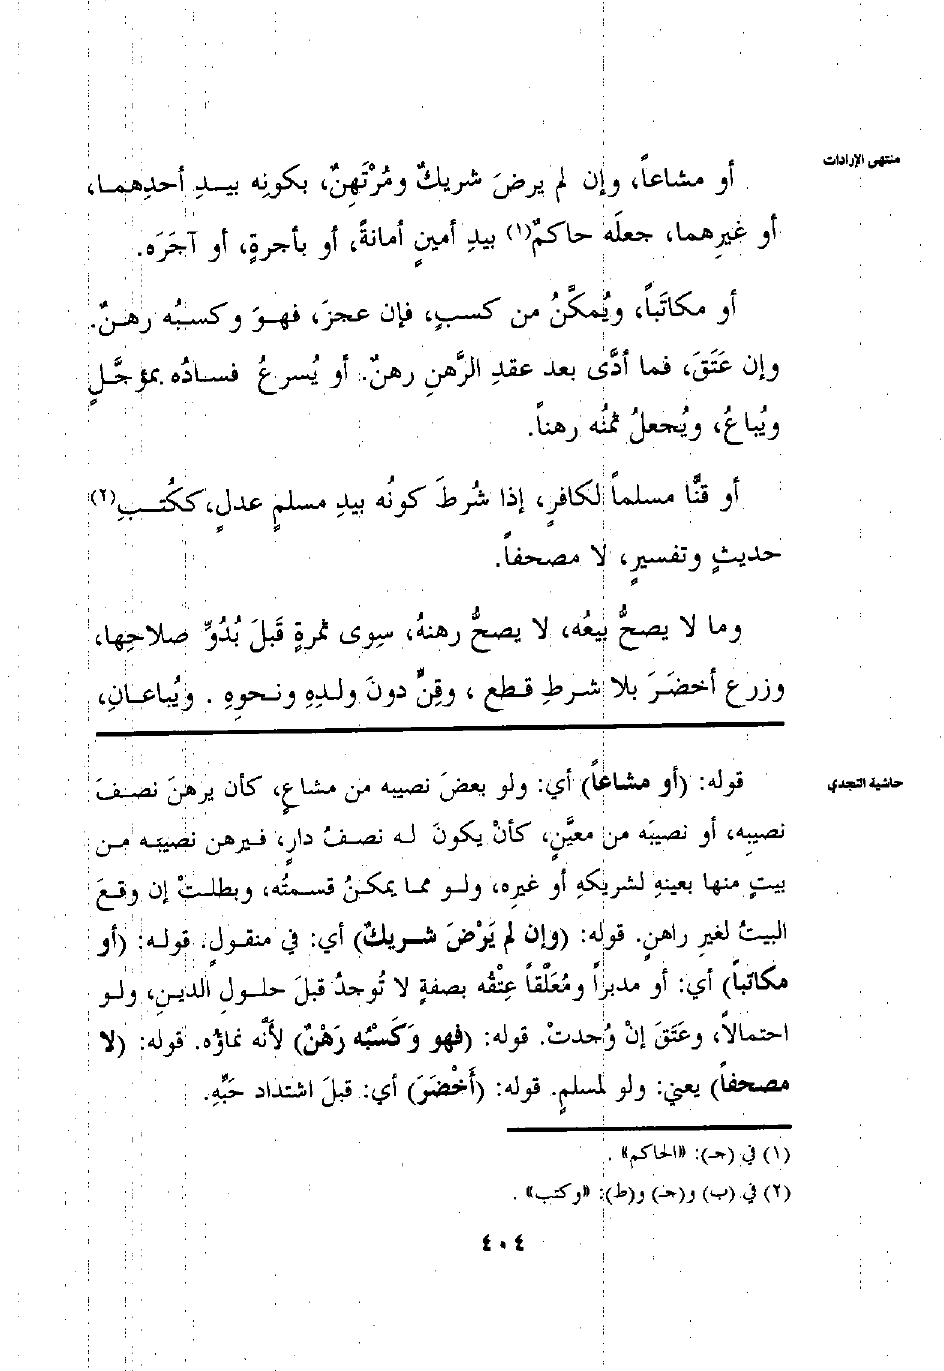 منتهى الإرادات
أو مشاعاً، وإن لم يرضَ شريكٌ ومُرْتَهِنٌ، بكونِه بيدِ أحدِهما،
أو غيرِهما، جعلَه حاكمٌ(١) بيدِ أمينٍ أمانةً، أو بأجرةٍ، أو آجَرَه.
أو مكاتَباً، ويُمكَّنُ من كسبٍ، فإن عجزَ، فهوَ وكسبُه رهنٌ.
وإن عَتَقَ، فما أدَّى بعد عقدِ الرَّهنِ رهنٌ. أو يُسرعُ فسادُه بمؤجَّلٍ
ويُباعُ، ويُجعلُ ثمنُه رهناً.
أو قنًّا مسلماً لكافرٍ، إذا شُرطَ كونُه بيدِ مسلمٍ عدلٍ، ككُتبِ(٢)
حديثٍ وتفسيرٍ، لا مصحفاً.
وما لا يصحُّ بيعُه، لا يصحُّ رهنهُ، سِوى ثمرةٍ قَبلَ بُدُوِّ صلاحِها،
وزرعٍ أخضَرَ بلا شرطِ قطعٍ، وقِنٍّ دونَ ولدِهِ ونحوِهِ. ويُباعانِ،
حاشية النجدي
قوله: (أو مشاعاً) أي: ولو بعضَ نصيبه من مشاعٍ، كأن يرهنَ نصفَ
نصيبِه، أو نصيبَه من معيَّنٍ، كأنْ يكونَ له نصفُ دارٍ، فيرهن نصيبَه من
بيتٍ منها بعينهِ لشريكهِ أو غيرِه، ولو مما يمكنُ قسمتُه، وبطلتْ إن وقعَ
البيتُ لغيرِ راهنٍ. قوله: (وإن لم يَرْضَ شريكٌ) أي: في منقولٍ. قوله: (أو
مكاتباً) أي: أو مدبراً ومُعَلَّقاً عِتْقُه بصفةٍ لا تُوجدُ قبلَ حلولِ الدينِ، ولو
احتمالاً، وعَتَقَ إنْ وُجدتْ. قوله: (فهو وَكَسْبُه رَهْنٌ) لأنَّه نماؤُه. قوله: (لا
مصحفاً) يعني: ولو لمسلمٍ. قوله: (أَخْضَرَ) أي: قبلَ اشتداد حَبِّهِ.
(١) في (جـ): «الحاكم» .
(٢) في (ب) و(جـ) و(ط): «وكتب» .
٤٠٤